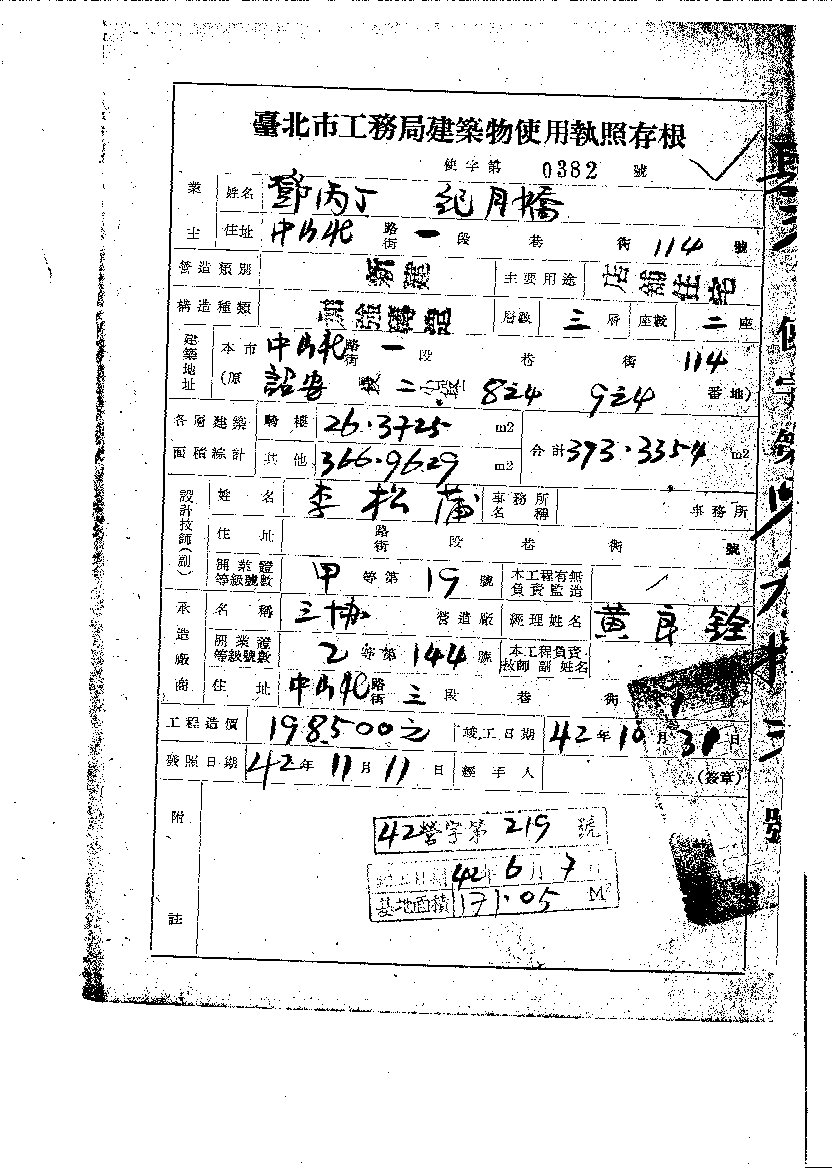 臺北市工務局建築物使用執照存根
使字第 0382 號
業主 姓名 鄧丙丁 紀月橋
住址 中山北路街 一 段 巷 街 114 號
營造類別 新建 主要用途 店舖住宅
構造種類 加強磚造 層數 三 層 座數 二 座
建築地址 本市 中山北路街 一 段 巷 街 114
(原 詔安 段 二 8之4 9之4 番地)
各層建築面積綜計 騎樓 26.3725 m2 合計 393.3354 m2
其他 366.9629 m2
設計技師(副) 姓名 李松蒲 事務所名稱 事務所
住址 路街 段 巷 街 號
開業證等級號數 甲 等第 19 號 本工程有無負責監造
承造廠商 名稱 三協 營造廠 經理姓名 黃良銓
開業證等級號數 乙 等第 144 號 本工程負責技師副姓名
住址 中山北路街 三 段 巷 街 1
工程造價 198500元 竣工日期 42年10月31日
發照日期 42年11月11日 經手人 (簽章)
附註
42營字第 219 號
開工日期 42年6月7日
基地面積 171.05 M²